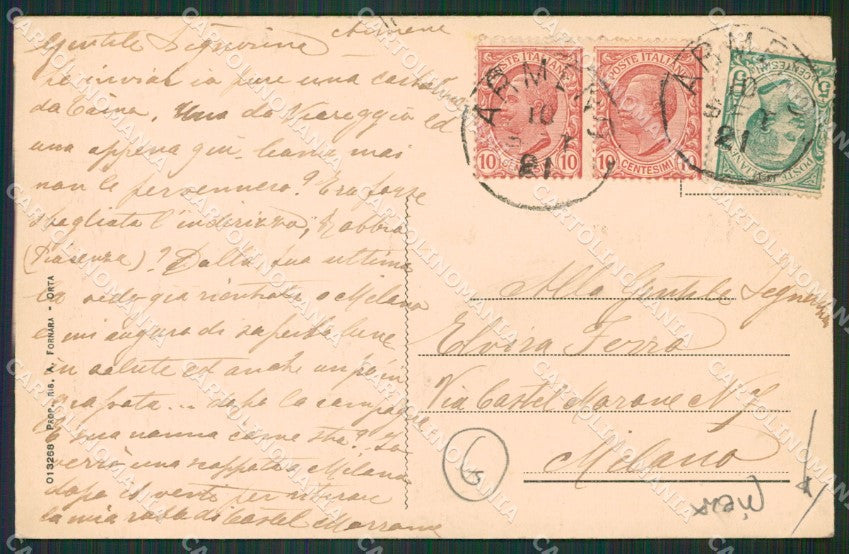 Armeno
Gentile Signorina
Le inviai io pure una cartol
da Taino, Una da Viareggio ed
una appena qui
non le pervennero? Era forse
sbagliata l'indirizzo, Rabbia
(Piacenza)? Dalla sua ultima
la vedo già rientrata a Milano
e mi auguro di saperla bene
in salute ed anche un po' in
grassata... dopo la campagna
E sua nonna come sta? Io
verrò una scappata a Milano
dopo il venti per ritirare
la mia roba di Castel Morrone
013268 PROP. RIS. A. FORNARA - ORTA
POSTE ITALIANE
10 CENTESIMI 10
POSTE ITALIANE
10 CENTESIMI 10
POSTE ITALIANE
CENTESIMI 5
ARMENO
10
21
ARMENO
10
21
Alla Gentile Signorina
Elvira Ferro
Via Castel Morone N 7
Milano
6
CARTOLINOMANIA